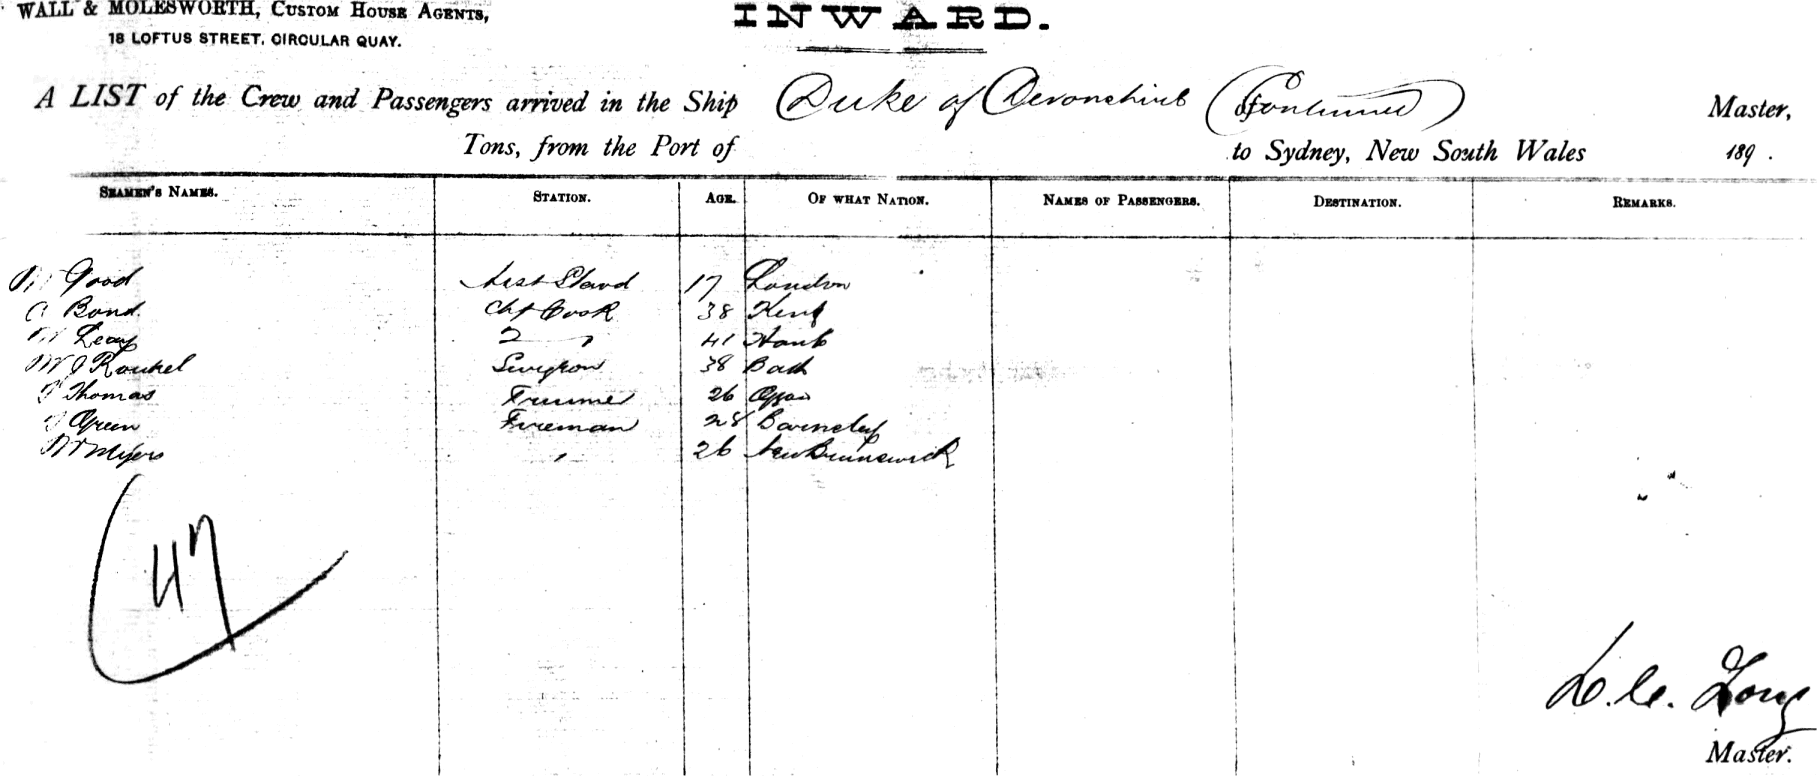 WALL & MOLESWORTH, CUSTOM HOUSE AGENTS,
18 LOFTUS STREET, CIRCULAR QUAY.
INWARD.
A LIST of the Crew and Passengers arrived in the Ship Duke of Devonshire (Continued) of Master,
Tons, from the Port of to Sydney, New South Wales 189 .
SEAMEN'S NAMES. STATION. AGE. OF WHAT NATION. NAMES OF PASSENGERS. DESTINATION. REMARKS.
Good 17 London
Bond Chf Cook 38 Kent
Leay 2 " 41 Hants
38 Bath
Thomas 26
Green Fireman 28 Barnsley
W Myers " 26 New Brunswick
47
Long
Master.